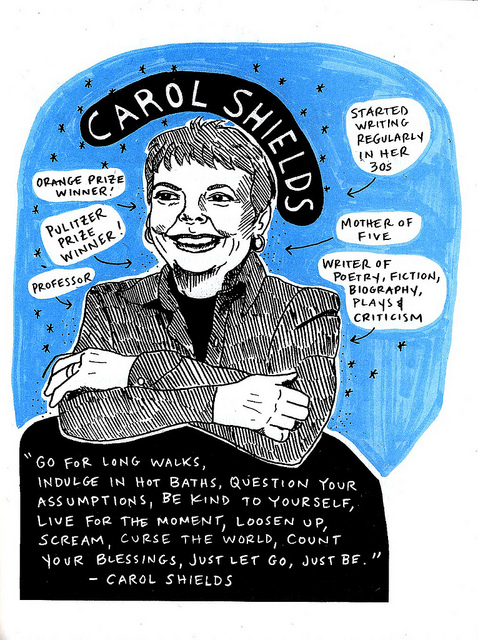 CAROL SHIELDS
STARTED
WRITING
REGULARLY
IN HER
30S
ORANGE PRIZE
WINNER!
PULITZER
PRIZE
WINNER!
PROFESSOR
MOTHER OF
FIVE
WRITER OF
POETRY, FICTION,
BIOGRAPHY,
PLAYS &
CRITICISM
"GO FOR LONG WALKS,
INDULGE IN HOT BATHS, QUESTION YOUR
ASSUMPTIONS, BE KIND TO YOURSELF,
LIVE FOR THE MOMENT, LOOSEN UP,
SCREAM, CURSE THE WORLD, COUNT
YOUR BLESSINGS, JUST LET GO, JUST BE."
- CAROL SHIELDS